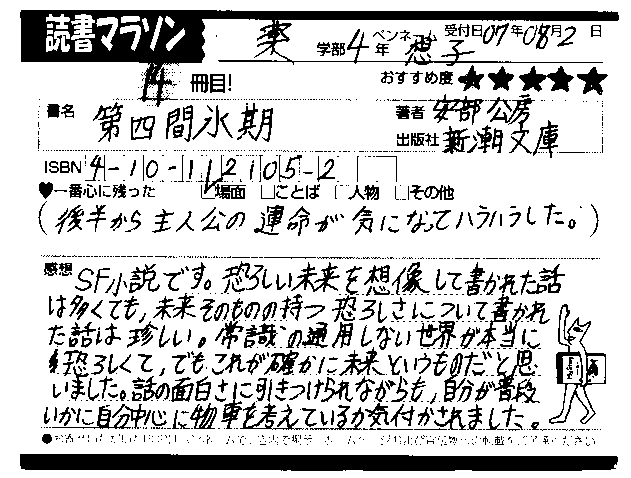 読書マラソン
薬 学部 4年 ペンネーム 想子 受付日 07年 08月 2日
4冊目! おすすめ度 ★★★★★
書名 第四間氷期 著者 安部公房
出版社 新潮文庫
ISBN 4-10-112105-2
♥一番心に残った ☑場面 □ことば □人物 □その他
(後半から主人公の運命が気になってハラハラした。)
感想 SF小説です。恐ろしい未来を想像して書かれた話
は多くても、未来そのものの持つ恐ろしさについて書かれ
た話は珍しい。常識の通用しない世界が本当に
恐ろしくて、でもこれが確かに未来というものだと思
いました。話の面白さに引きつけられながらも、自分が普段
いかに自分中心に物事を考えているか気付かされました。